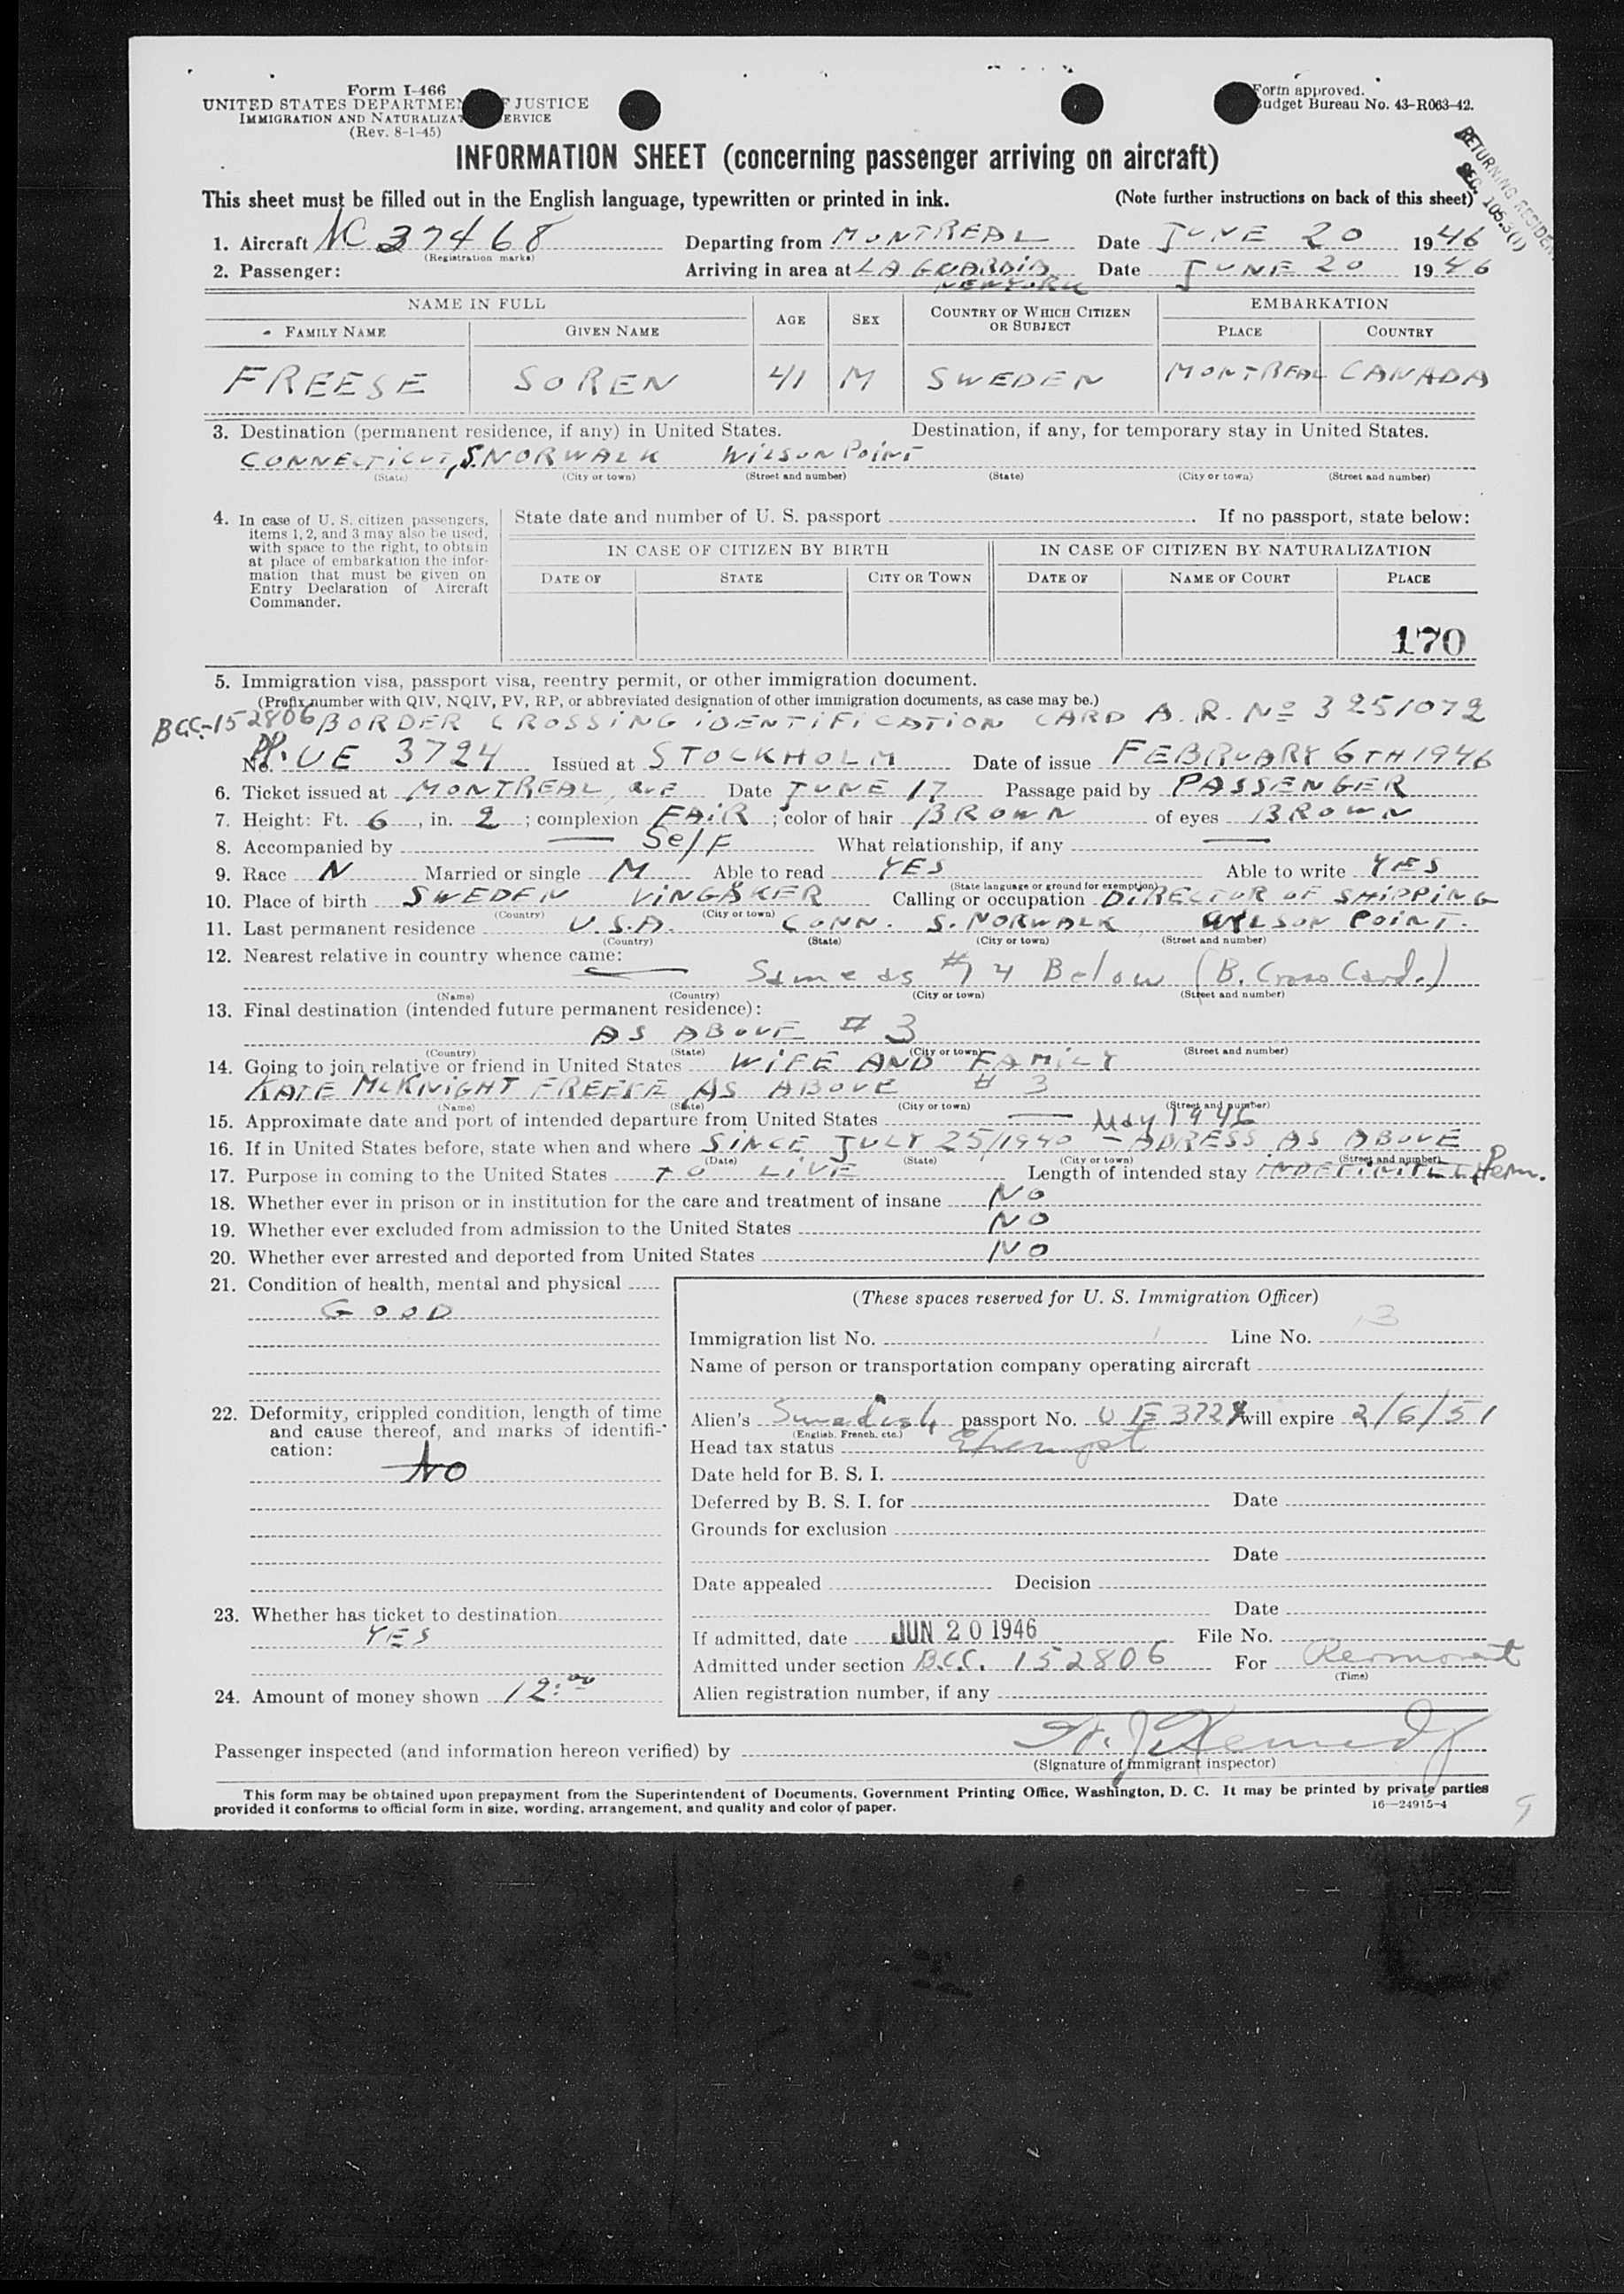 Form I-466
UNITED STATES DEPARTMEN F JUSTICE
IMMIGRATION AND NATURALIZAT ERVICE
(Rev. 8-1-45)
Form approved.
Budget Bureau No. 43-R063-42.
RETURNING RESIDEN
SEC. 105.3(1)
INFORMATION SHEET (concerning passenger arriving on aircraft)
This sheet must be filled out in the English language, typewritten or printed in ink. (Note further instructions on back of this sheet)
1. Aircraft NC 37468 Departing from MONTREAL Date JUNE 20 1946
(Registration marks)
2. Passenger: Arriving in area at LA GUARDIA Date JUNE 20 1946
NEW YORK
NAME IN FULL AGE SEX COUNTRY OF WHICH CITIZEN OR SUBJECT EMBARKATION
FAMILY NAME GIVEN NAME PLACE COUNTRY
FREESE SOREN 41 M SWEDEN MONTREAL CANADA
3. Destination (permanent residence, if any) in United States. Destination, if any, for temporary stay in United States.
CONNECTICUT, S. NORWALK WILSON POINT
(State) (City or town) (Street and number) (State) (City or town) (Street and number)
4. In case of U. S. citizen passengers, items 1, 2, and 3 may also be used, with space to the right, to obtain at place of embarkation the information that must be given on Entry Declaration of Aircraft Commander.
State date and number of U. S. passport . If no passport, state below:
IN CASE OF CITIZEN BY BIRTH IN CASE OF CITIZEN BY NATURALIZATION
DATE OF STATE CITY OR TOWN DATE OF NAME OF COURT PLACE
170
5. Immigration visa, passport visa, reentry permit, or other immigration document.
(Prefix number with QIV, NQIV, PV, RP, or abbreviated designation of other immigration documents, as case may be.)
BCC-152806 BORDER CROSSING IDENTIFICATION CARD A.R. No 3251072
PP. No. UE 3724 Issued at STOCKHOLM Date of issue FEBRUARY 6TH 1946
6. Ticket issued at MONTREAL, QUE Date JUNE 17 Passage paid by PASSENGER
7. Height: Ft. 6, in. 2; complexion FAIR; color of hair BROWN of eyes BROWN
8. Accompanied by — Self What relationship, if any —
9. Race N Married or single M Able to read YES Able to write YES
(State language or ground for exemption)
10. Place of birth SWEDEN VINGÅKER Calling or occupation DIRECTOR OF SHIPPING
(Country) (City or town)
11. Last permanent residence U.S.A. CONN. S. NORWALK, WILSON POINT.
(Country) (State) (City or town) (Street and number)
12. Nearest relative in country whence came:
— Same as #14 Below (B. Cross Card.)
(Name) (Country) (City or town) (Street and number)
13. Final destination (intended future permanent residence):
AS ABOVE # 3
(Country) (State) (City or town) (Street and number)
14. Going to join relative or friend in United States WIFE AND FAMILY
KATE McKNIGHT FREESE AS ABOVE # 3
(Name) (State) (City or town) (Street and number)
15. Approximate date and port of intended departure from United States — May 1946
16. If in United States before, state when and where SINCE JULY 25/1940 – ADRESS AS ABOVE
(Date) (State) (City or town) (Street and number)
17. Purpose in coming to the United States TO LIVE Length of intended stay INDEFINITELY Perm.
18. Whether ever in prison or in institution for the care and treatment of insane NO
19. Whether ever excluded from admission to the United States NO
20. Whether ever arrested and deported from United States NO
21. Condition of health, mental and physical
GOOD
22. Deformity, crippled condition, length of time and cause thereof, and marks of identification:
NO
23. Whether has ticket to destination
YES
24. Amount of money shown 12.00
(These spaces reserved for U. S. Immigration Officer)
Immigration list No. 1 Line No. 13
Name of person or transportation company operating aircraft
Alien's Swedish passport No. UE 3724 will expire 2/6/51
(English, French, etc.)
Head tax status Exempt
Date held for B. S. I.
Deferred by B. S. I. for Date
Grounds for exclusion
Date
Date appealed Decision
Date
If admitted, date JUN 20 1946 File No.
Admitted under section B.C.C. 152806 For Permanent
(Time)
Alien registration number, if any
Passenger inspected (and information hereon verified) by J. Kennedy
(Signature of immigrant inspector)
This form may be obtained upon prepayment from the Superintendent of Documents, Government Printing Office, Washington, D. C. It may be printed by private parties
provided it conforms to official form in size, wording, arrangement, and quality and color of paper. 16—24915-4
9